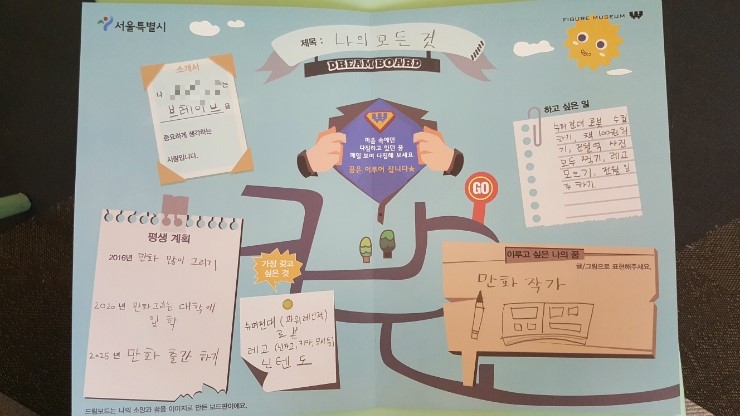 서울특별시
제목 : 나의 모든 것
DREAM BOARD
FIGURE MUSEUM W
소개서
나 는
브레이브 을
중요하게 생각하는
사람입니다.
W
마음 속에만
다짐하고 있던 꿈
매일 보며 다짐해 보세요
꿈은 이루어 집니다★
하고 싶은 일
로봇 수집
하기 책 100권 읽
기, 사진
모두 찍기, 레고
모으기,
가기
GO
평생 계획
2016년 만화 많이 그리기
2020년 만화그리는 대학에
입학
2025년 만화 출간 하기
가장 갖고
싶은 것
슈퍼전대 (파워레인져)
로봇
레고 (닌자고, 키마,
닌텐도
이루고 싶은 나의 꿈
글/그림으로 표현해주세요.
만화 작가
드림보드는 나의 소망과 꿈을 이미지로 만든 보드판이에요.